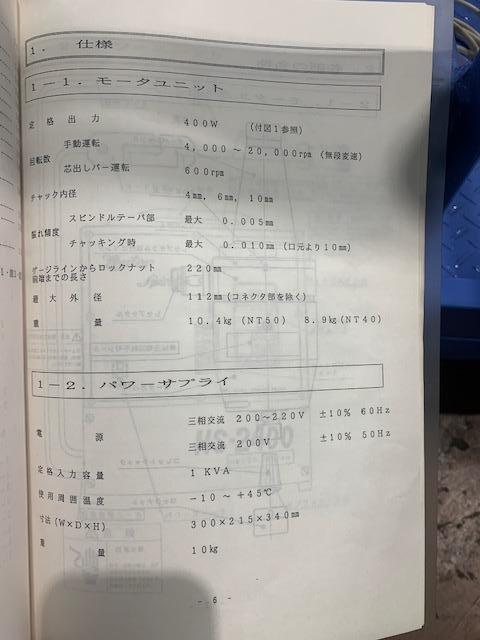 1. 仕様
1－1. モータユニット
定格出力 400W (付図1参照)
手動運転 4,000 ～ 20,000rpm (無段変速)
回転数
芯出しバー運転 600rpm
チャック内径 4mm, 6mm, 10mm
スピンドルテーパ部 最大 0.005mm
振れ精度
チャッキング時 最大 0.010mm (口元より10mm)
ゲージラインからロックナット
前端までの長さ 220mm
最大外径 112mm (コネクタ部を除く)
重量 10.4kg (NT50) 8.9kg (NT40)
1－2. パワーサプライ
三相交流 200～220V ±10% 60Hz
電源
三相交流 200V ±10% 50Hz
定格入力容量 1 KVA
使用周囲温度 －10 ～ ＋45℃
寸法 (W×D×H) 300×215×340mm
重量 10kg
- 6 -